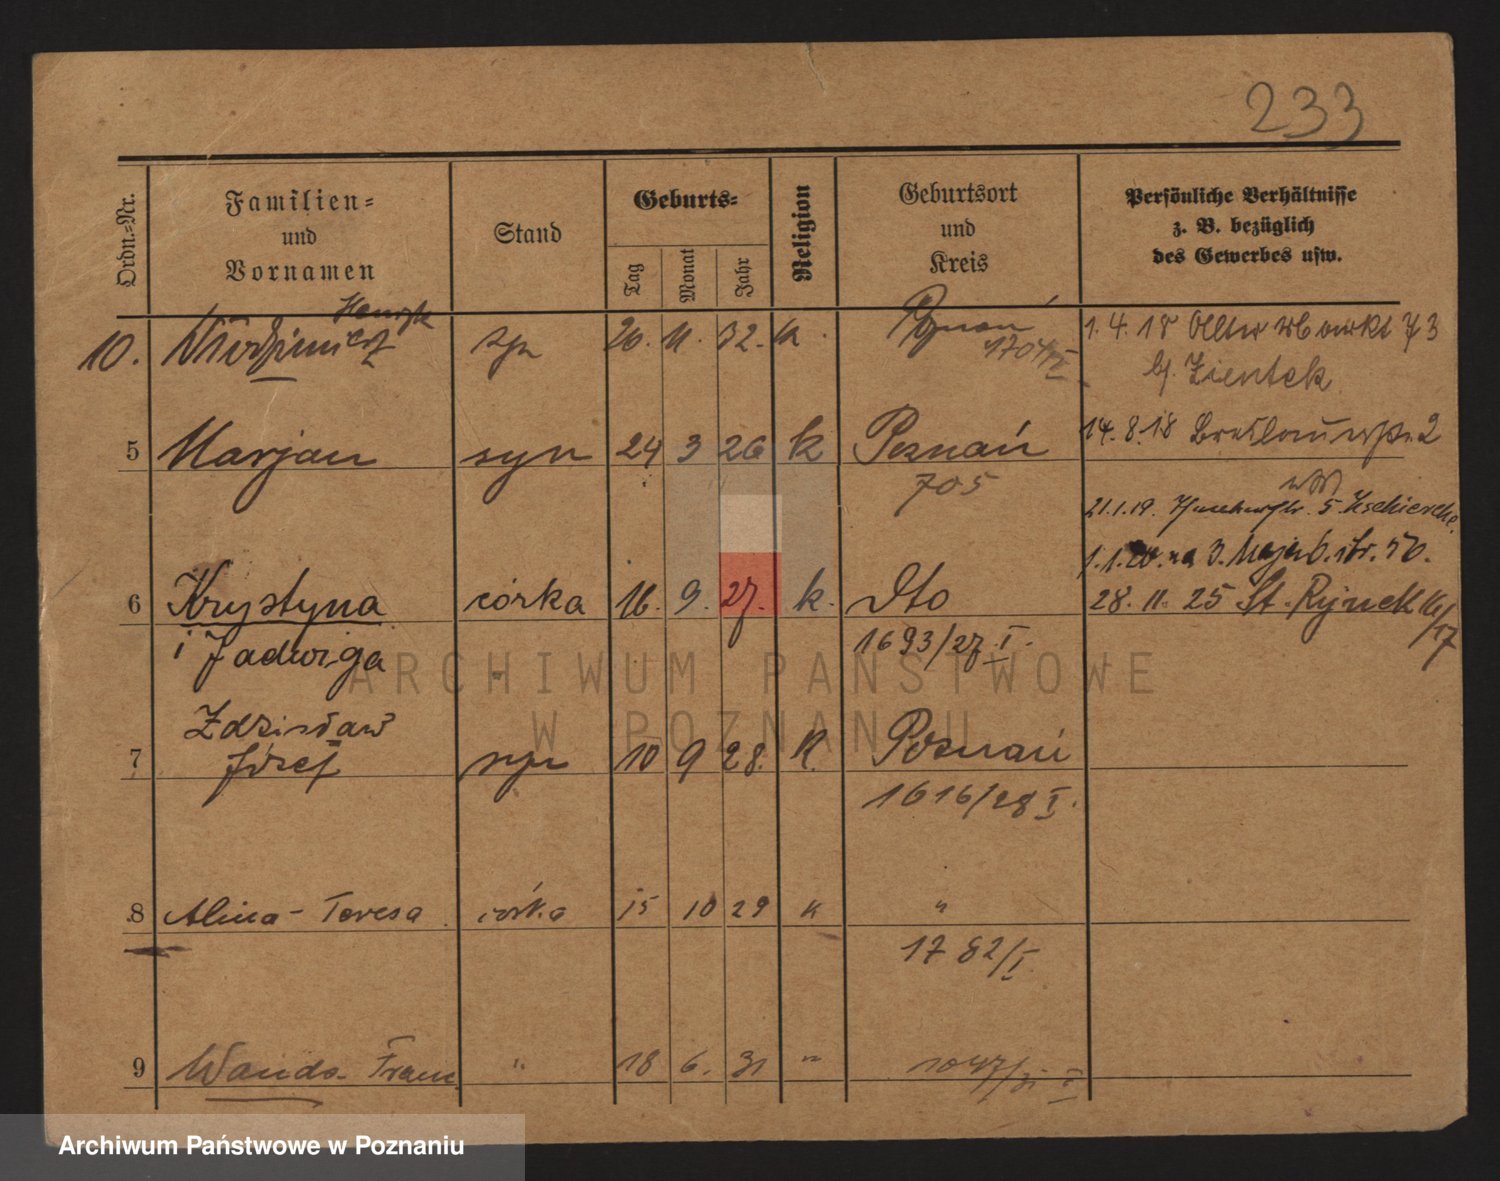 233
Ordn.-Nr.
Familien-
und
Vornamen
Stand
Geburts-
Tag
Monat
Jahr
Religion
Geburtsort
und
Kreis
Persönliche Verhältnisse
z. B. bezüglich
des Gewerbes usw.
Henryk
10. Włodzimierz syn 20. 11. 32. k. Poznań
1704/II
1.4.18
bj. Zientek
5 Marjan syn 24 3 26 k Poznań
705
14.8.18 2
21.1.19. 5.
1.1.20. na 3. Maja 6.
6 Krystyna córka 16. 9. 27. k. Dto 28. 11. 25 St. Rynek 16/17
i Jadwiga
1693/27 I.
Zdzisław
7 Józef syn 10 9 28. k. Poznań
1616/28 I.
8 Alina - Teresa córka 15 10 29 k "
1782/I
9 Wanda Franc " 18 6. 31 " 1047/31 I
ARCHIWUM PAŃSTWOWE
W POZNANIU
Archiwum Państwowe w Poznaniu